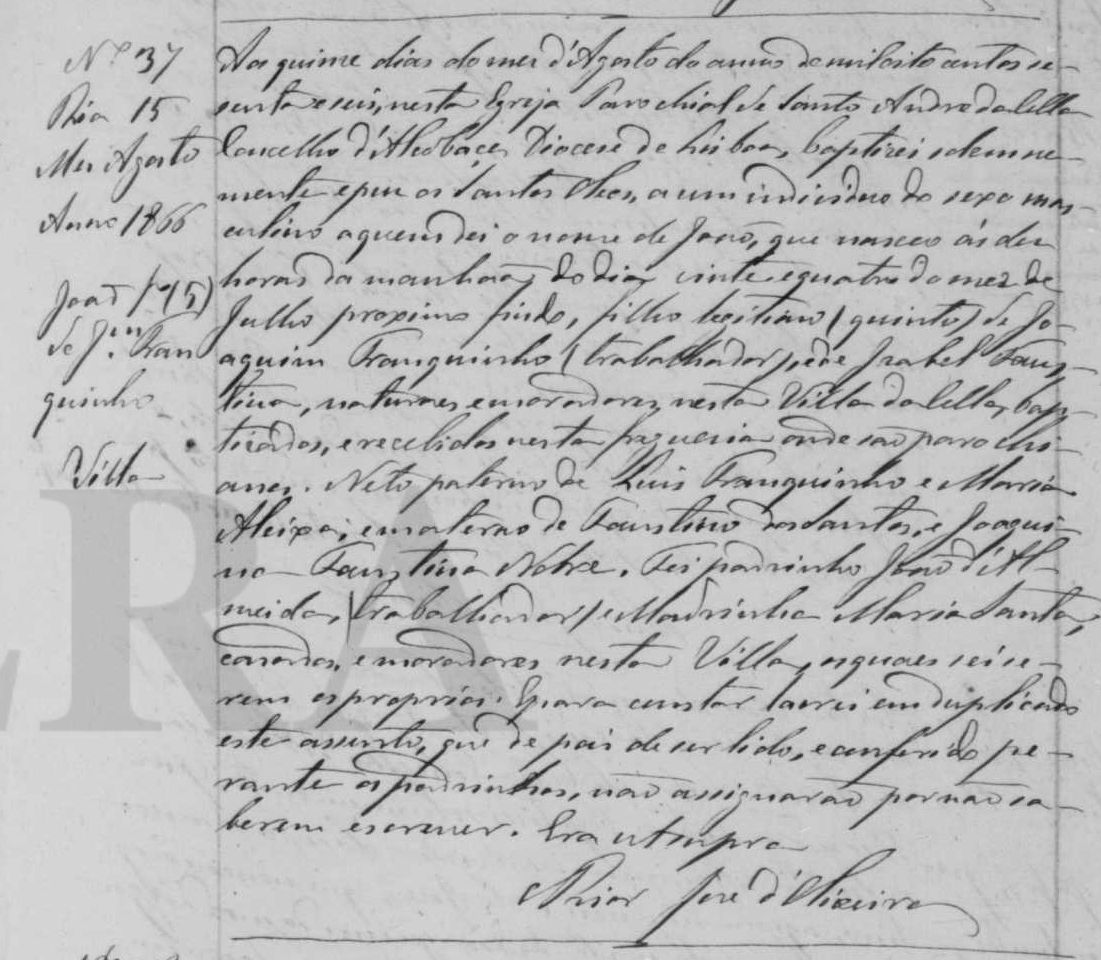 Nº 37
Dia 15
Mes Agosto
Anno 1866
João
de Jm. Fran
quinho
Villa
Aos quinze dias do mez d'Agosto do anno de mil oito centos se-
senta e seis, nesta Egreja Parochial de Santo André da Cella
Concelho d'Alcobaça, Diocese de Lisboa, baptizei solemne-
mente e puz os Santos Oleos, a um individuo do sexo mas-
culino a quem dei o nome de João, que nasceo ás dez
horas da manhaã do dia vinte e quatro do mez de
Julho proximo findo, filho legitimo (quinto) de Jo-
aquim Franquinho (trabalhador) e de Izabel Faus-
tina, naturaes, e moradores, nesta Villa da Cella, bap-
tizados, e recebidos nesta freguezia onde são parochi-
anos. Neto paterno de Luis Franquinho e Maria
Aleixa; e materno de Faustino dos Santos, e Joaqui-
na Faustina Nobre. Foi padrinho João d'Al-
meida, (trabalhador) e Madrinha Maria Santa,
casados, e moradores nesta Villa, os quaes sei se-
rem os proprios. E para constar lavrei em duplicado
este assento, que de pois de ser lido, e conferido pe-
rante os padrinhos, não assignarão por não sa-
berem escrever. Era ut supra
O Prior José d'Oliveira
ERA